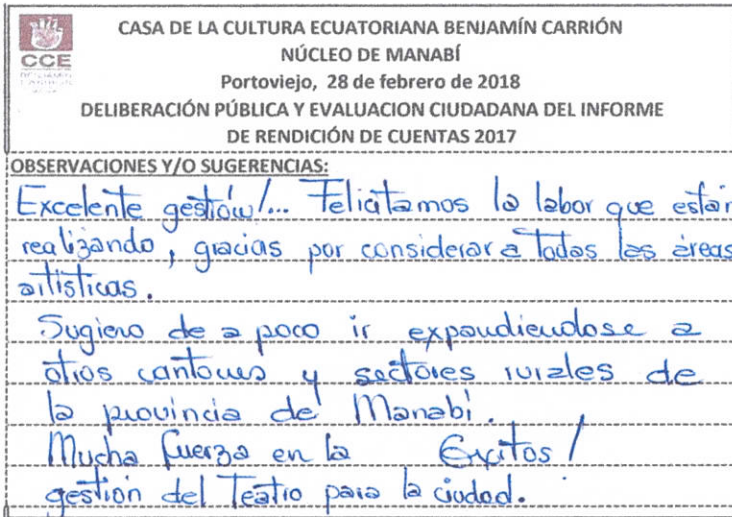 CCE
CASA DE LA CULTURA ECUATORIANA BENJAMÍN CARRIÓN
NÚCLEO DE MANABÍ
Portoviejo, 28 de febrero de 2018
DELIBERACIÓN PÚBLICA Y EVALUACION CIUDADANA DEL INFORME
DE RENDICIÓN DE CUENTAS 2017
OBSERVACIONES Y/O SUGERENCIAS:
Excelente gestión!... Felicitamos la labor que están
realizando, gracias por considerar a todas las áreas
artísticas.
Sugiero de a poco ir expandiendose a
otros cantones y sectores rurales de
la provincia de Manabí.
Mucha fuerza en la Exitos!
gestión del Teatro para la ciudad.